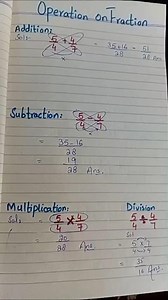 Operation on Fraction
Addition:
Sol:
5/4 + 4/7 = 35+16/28 = 51/28 Ans.
Subtraction:
5/4 - 4/7
= 35-16/28
= 19/28 Ans.
Multiplication: Division
Sol:
5/4 × 4/7
20/28 Ans
5/4 ÷ 4/7
Sol
5/4 × 7/4
= 35/16 Ans